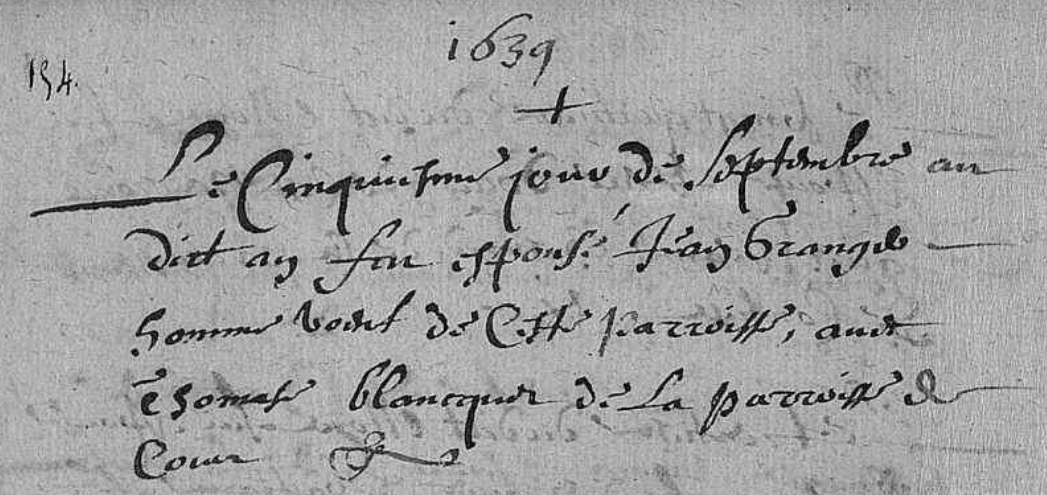 1639
154.
Le Cinquiesme jour de Septembre au
dict an fut espousé Jean Grangé
homme voeuf de Cette parroisse, avec
Thomase blancquet de La parroisse de
Cour